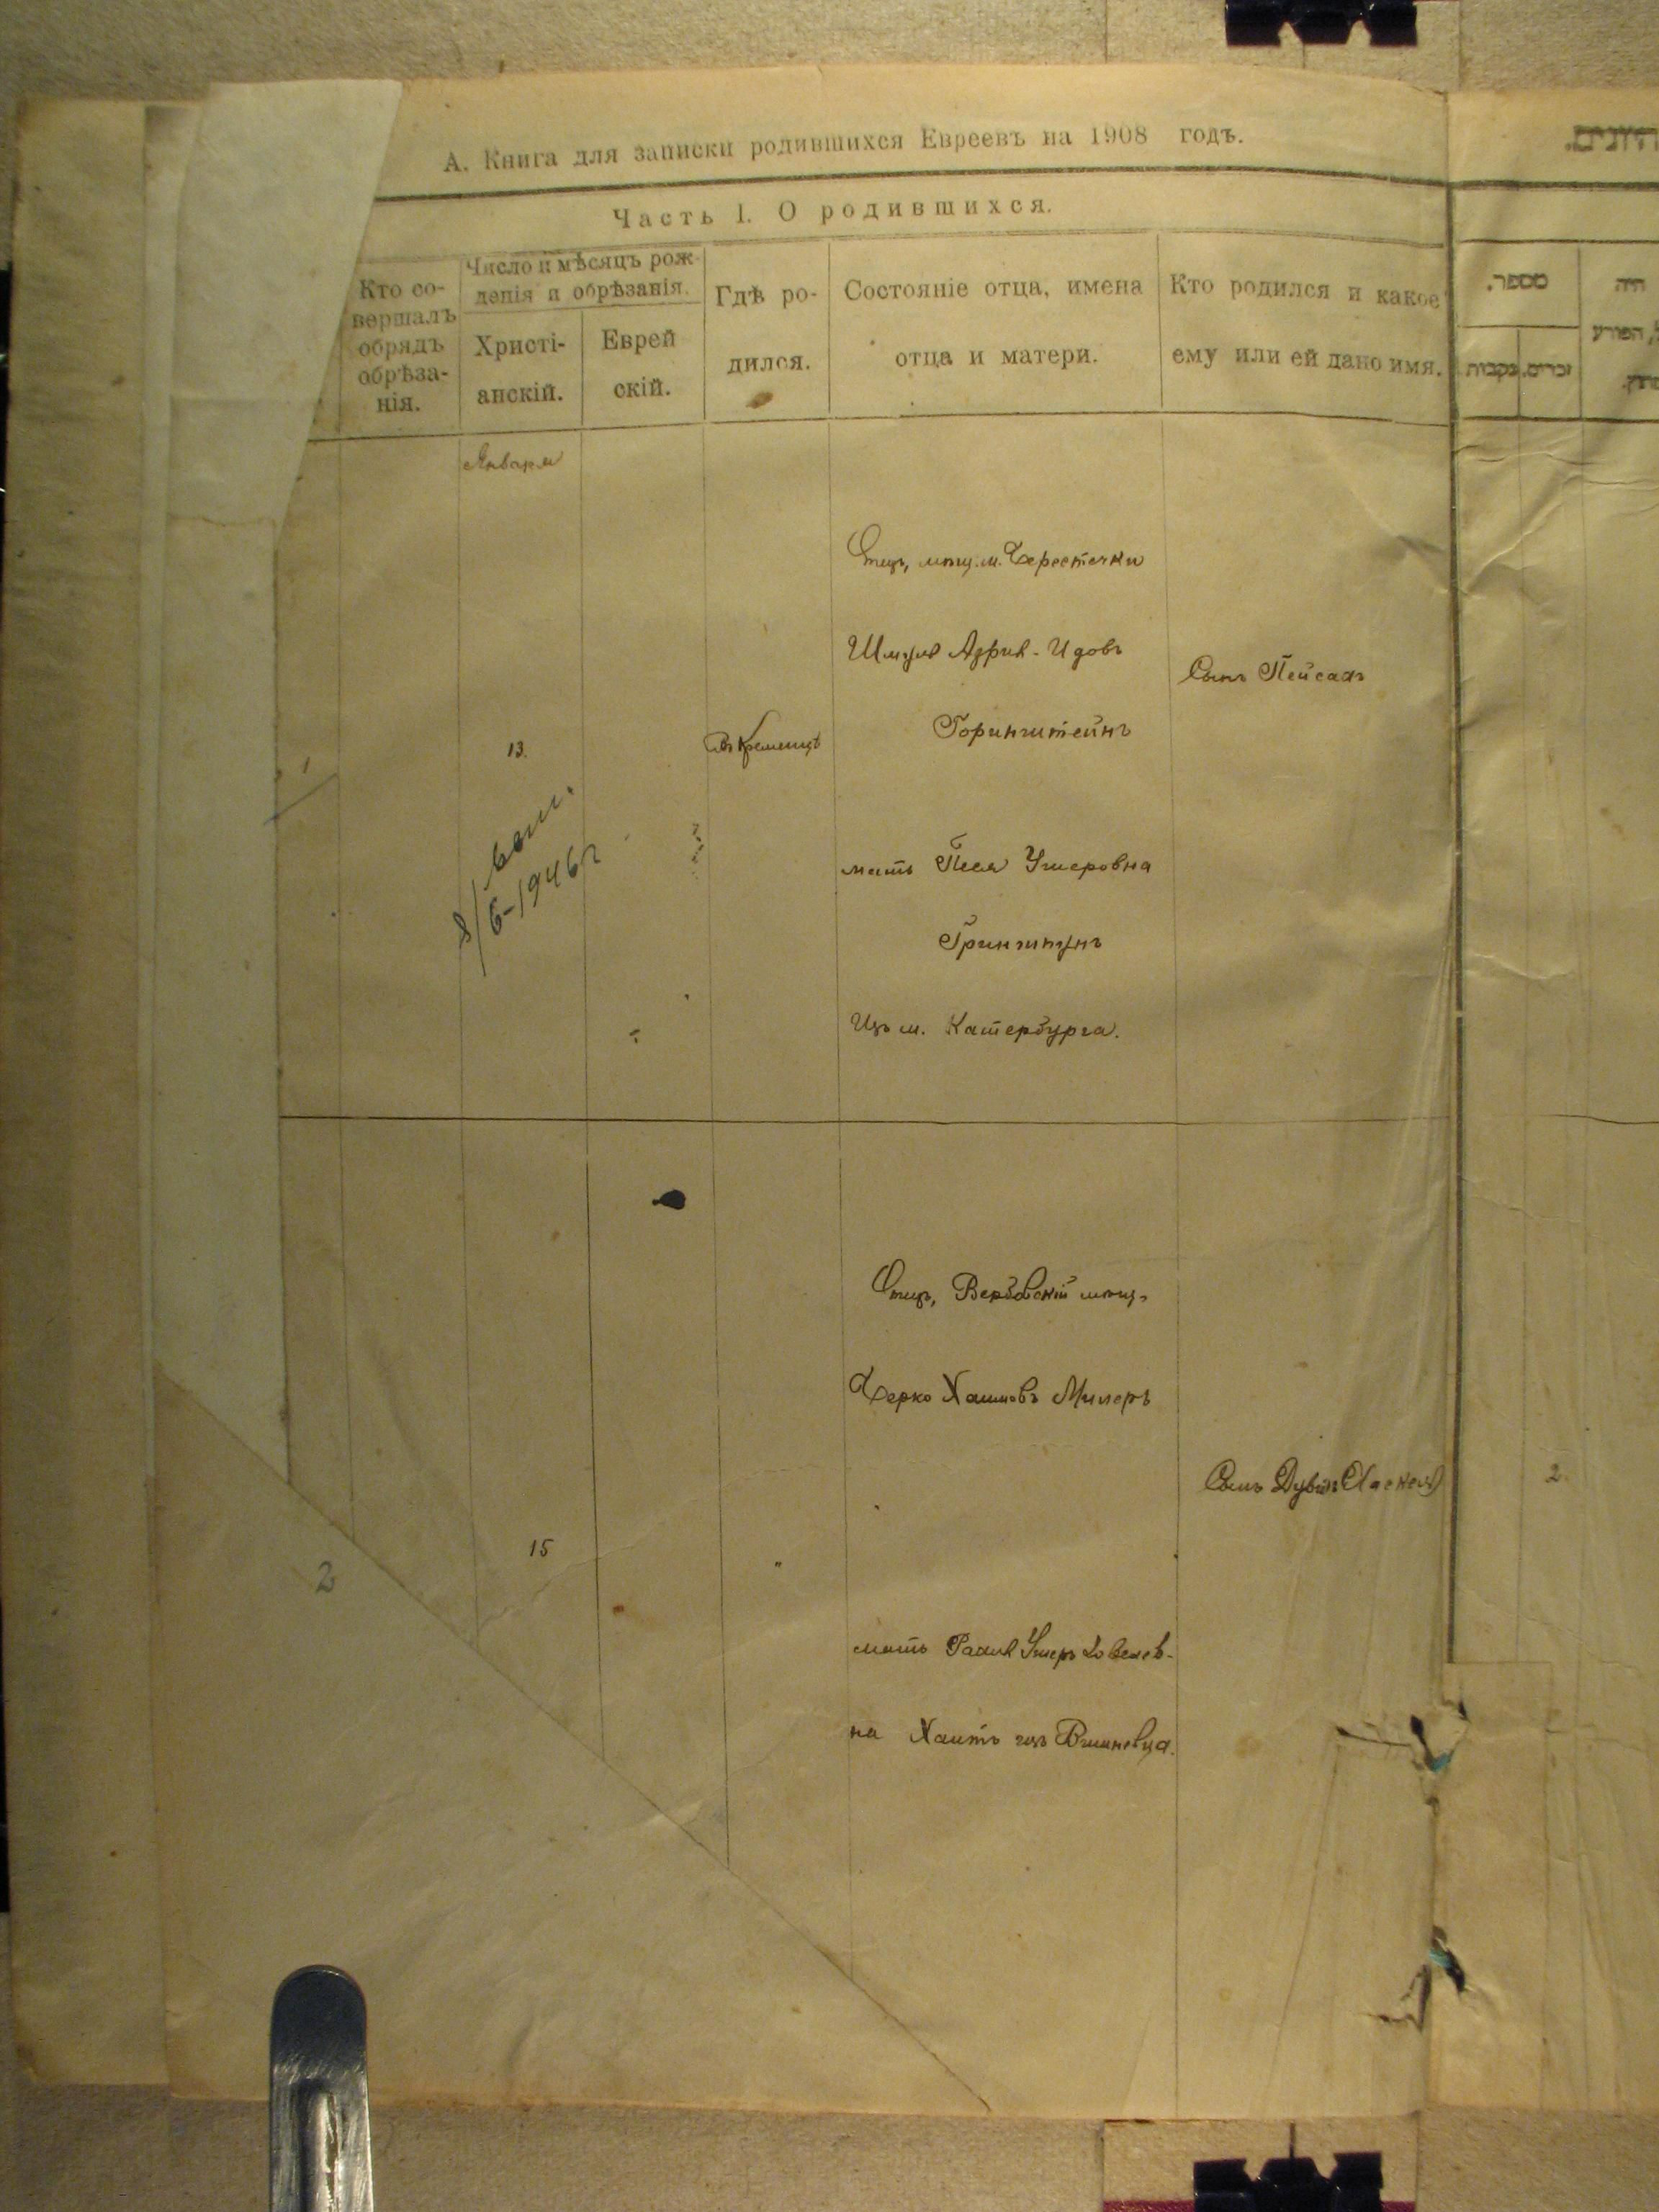 А. Книга для записки родившихся Евреевъ на 1908 годъ.
Часть I. О родившихся.
Кто со-
вершалъ
обрядъ
обрѣза-
нія.
Число и мѣсяцъ рож-
денія и обрѣзанія.
Христі-
анскій.
Еврей
скій.
Гдѣ ро-
дился.
Состояніе отца, имена
отца и матери.
Кто родился и какое
ему или ей дано имя.
מספר.
זכרים.
נקבות
היה
Января
1
13.
Въ Кременцѣ
Отецъ, мѣщ. м. Берестечки
Шмуль Азрил-Идовъ
Горинштейнъ
мать Песя Ушеровна
Гринштунъ
Изъ м. Катербурга.
Сынъ Пейсахъ
8/6-1946 г
2
15
"
Отецъ, Вербовскій мѣщ.
Берко Хаимовъ Милеръ
мать Рахил Ушеръ
на Хаитъ изъ Вишневца.
Сынъ
2.